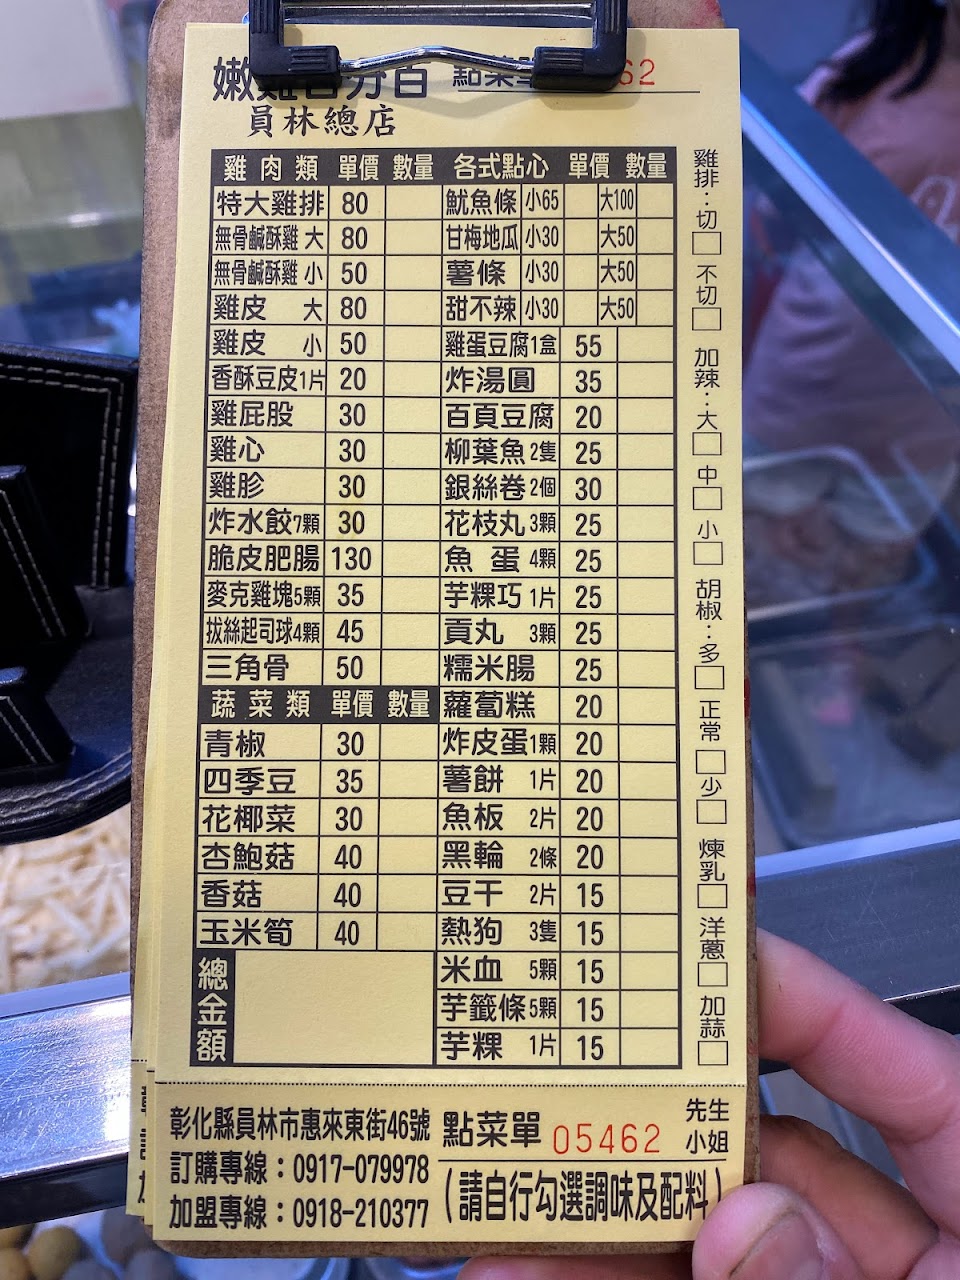 嫩雞百分百 點菜單 62
員林總店
雞肉類 單價 數量 各式點心 單價 數量
特大雞排 80 魷魚條 小65 大100
無骨鹹酥雞 大 80 甘梅地瓜 小30 大50
無骨鹹酥雞 小 50 薯條 小30 大50
雞皮 大 80 甜不辣 小30 大50
雞皮 小 50 雞蛋豆腐1盒 55
香酥豆皮1片 20 炸湯圓 35
雞屁股 30 百頁豆腐 20
雞心 30 柳葉魚2隻 25
雞胗 30 銀絲卷2個 30
炸水餃7顆 30 花枝丸3顆 25
脆皮肥腸 130 魚蛋 4顆 25
麥克雞塊5顆 35 芋粿巧1片 25
拔絲起司球4顆 45 貢丸 3顆 25
三角骨 50 糯米腸 25
蔬菜類 單價 數量 蘿蔔糕 20
青椒 30 炸皮蛋1顆 20
四季豆 35 薯餅 1片 20
花椰菜 30 魚板 2片 20
杏鮑菇 40 黑輪 2條 20
香菇 40 豆干 2片 15
玉米筍 40 熱狗 3隻 15
總金額 米血 5顆 15
芋籤條5顆 15
芋粿 1片 15
雞排：切□ 不切□ 加辣：大□ 中□ 小□ 胡椒：多□ 正常□ 少□ 煉乳□ 洋蔥□ 加蒜□
彰化縣員林市惠來東街46號 點菜單 05462 先生
小姐
訂購專線：0917-079978
加盟專線：0918-210377 (請自行勾選調味及配料)